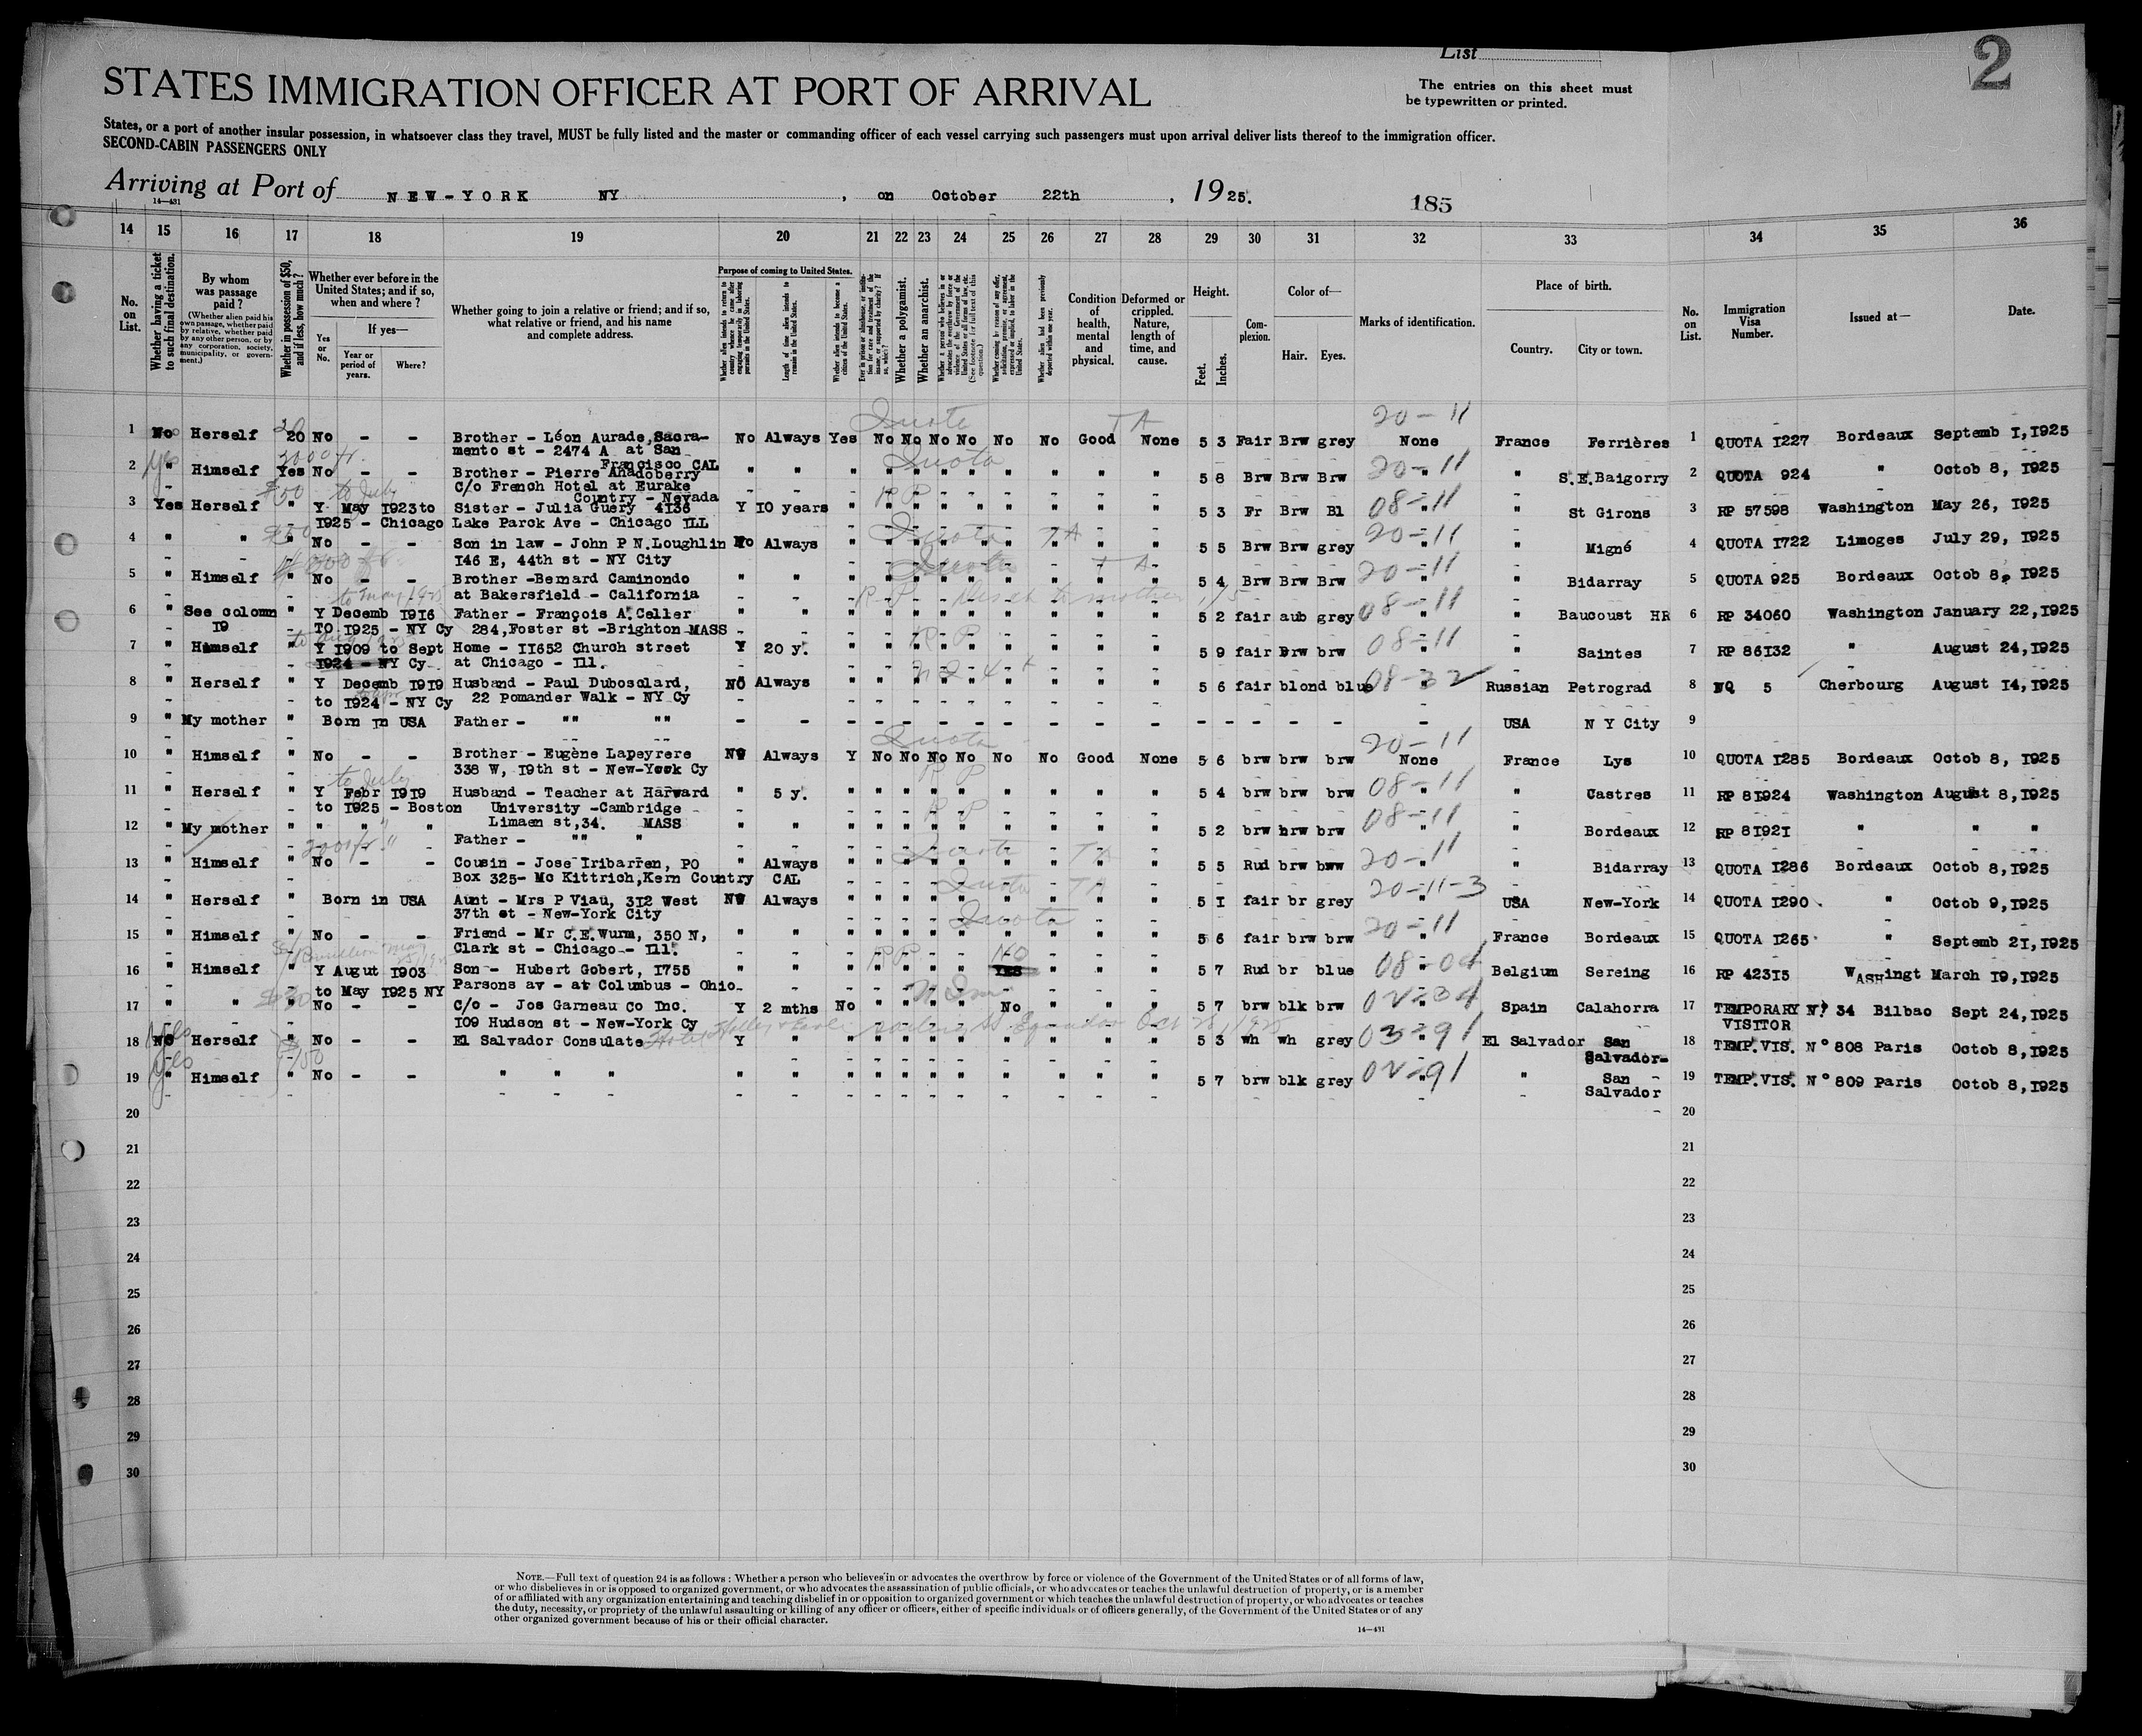 List
2
STATES IMMIGRATION OFFICER AT PORT OF ARRIVAL
The entries on this sheet must
be typewritten or printed.
States, or a port of another insular possession, in whatsoever class they travel, MUST be fully listed and the master or commanding officer of each vessel carrying such passengers must upon arrival deliver lists thereof to the immigration officer.
SECOND-CABIN PASSENGERS ONLY
Arriving at Port of NEW-YORK NY , on October 22th , 1925.
14—431
185
14 15 16 17 18 19 20 21 22 23 24 25 26 27 28 29 30 31 32 33 34 35 36
No. on List.
Whether having a ticket to such final destination.
By whom was passage paid?
(Whether alien paid his own passage, whether paid by relative, whether paid by any other person, or by any corporation, society, municipality, or government.)
Whether in possession of $50, and if less, how much?
Whether ever before in the United States; and if so, when and where?
Yes or No.
If yes—
Year or period of years.
Where?
Whether going to join a relative or friend; and if so, what relative or friend, and his name and complete address.
Purpose of coming to United States.
Whether alien intends to return to country whence he came after engaging temporarily in laboring pursuits in the United States.
Length of time alien intends to remain in the United States.
Whether alien intends to become a citizen of the United States.
Ever in prison or almshouse, or institution for care and treatment of the insane, or supported by charity? If so, which?
Whether a polygamist.
Whether an anarchist.
Whether a person who believes in or advocates the overthrow by force or violence of the Government of the United States or all forms of law, etc. (See footnote for full text of this question.)
Whether coming by reason of any offer, solicitation, promise, or agreement, expressed or implied, to labor in the United States.
Whether alien had been previously deported within one year.
Condition of health, mental and physical.
Deformed or crippled. Nature, length of time, and cause.
Height.
Feet.
Inches.
Complexion.
Color of—
Hair.
Eyes.
Marks of identification.
Place of birth.
Country.
City or town.
No. on List.
Immigration Visa Number.
Issued at—
Date.
Quota TA 20-11
1 No Herself 20 No - - Brother - Léon Aurade, Sacra- No Always Yes No No No No No No Good None 5 3 Fair Brw grey None France Ferrières 1 QUOTA 1227 Bordeaux Septemb 1,1925
mento st - 2474 A at San
Francisco CAL
yes 2000 fr. Quota 20-11
2 " Himself Yes No - - Brother - Pierre Anadoberry " " " " " " " " " " " 5 8 Brw Brw Brw " " S.E.Baigorry 2 QUOTA 924 " Octob 8, 1925
C/o French Hotel at Eurake
Country - Nevada
$50 to July RP 08-11
3 Yes Herself " Y May 1923 to Sister - Julia Guery 4136 Y 10 years " " " " " " " " " 5 3 Fr Brw Bl " " St Girons 3 RP 57598 Washington May 26, 1925
1925 - Chicago Lake Parck Ave - Chicago ILL
Quota TA 20-11
4 " " " No - - Son in law - John P N.Loughlin No Always " " " " " " " " " 5 5 Brw Brw grey " " Migné 4 QUOTA 1722 Limoges July 29, 1925
146 E, 44th st - NY City
Quota TA 20-11
5 " Himself " No - - Brother -Bernard Caminondo " " " " " " " " " " " 5 4 Brw Brw Brw " " Bidarray 5 QUOTA 925 Bordeaux Octob 8, 1925
at Bakersfield - California
to may/925 RP 08-11
6 " See colomn " Y Decemb 1916 Father - François A. Celler " " " " " " " " " " " 5 2 fair aub grey " " Baucoust HR 6 RP 34060 Washington January 22,1925
19 TO 1925 - NY Cy 284,Foster st -Brighton MASS
R P 08-11
7 " Himself " Y 1909 to Sept Home - 11652 Church street Y 20 y. " " " " " " " " " 5 9 fair Brw brw " " Saintes 7 RP 86132 " August 24,1925
1924 - NY Cy at Chicago - Ill.
08-32
8 " Herself " Y Decemb 1919 Husband - Paul Duboscolard, NO Always " " " " " " " " " 5 6 fair blond blue " Russian Petrograd 8 NQ 5 Cherbourg August 14,1925
to 1924 - NY Cy 22 Pomander Walk - NY Cy
9 " My mother " Born in USA Father - "" "" - - - - - - - - - - - - - - - - - USA N Y City 9
Quota 20-11
10 " Himself " No - - Brother - Eugène Lapeyrere NO Always Y No No No No No No Good None 5 6 brw brw brw None France Lys 10 QUOTA 1285 Bordeaux Octob 8, 1925
338 W, 19th st - New-York Cy
to July R P 08-11
11 " Herself " Y Febr 1919 Husband - Teacher at Harward " 5 y. " " " " " " " " " 5 4 brw brw brw " " Castres 11 RP 81924 Washington August 8,1925
to 1925 - Boston University -Cambridge
Limaen st,34. MASS
R P 08-11
12 " My mother " " " " Father - "" " " " " " " " " " " " " " 5 2 brw brw brw " " Bordeaux 12 RP 81921 " " "
2000 fr. Quota TA 20-11
13 " Himself " No - - Cousin - Jose Iribarren, PO " Always " " " " " " " " " 5 5 Rud brw bww " " Bidarray 13 QUOTA 1286 Bordeaux Octob 8,1925
Box 325- Mc Kittrich,Kern Country CAL
Quota TA 20-11-3
14 " Herself " Born in USA Aunt - Mrs P Viau, 312 West NO Always " " " " " " " " " 5 1 fair br grey " USA New-York 14 QUOTA 1290 " Octob 9,1925
37th st - New-York City
Quota 20-11
15 " Himself " No - - Friend - Mr C.E.Wurm, 350 N, " " " " " " " " " " " 5 6 fair brw brw " France Bordeaux 15 QUOTA 1265 " Septemb 21,1925
Clark st - Chicago - Ill.
RP NO 08-04
16 " Himself " Y Augut 1903 Son - Hubert Gobert, 1755 " " " " " " " YES " " " 5 7 Rud br blue " Belgium Sereing 16 RP 42315 WASHingt March 19,1925
to May 1925 NY Parsons av - at Columbus - Ohio
02-34
17 " " " No - - C/o - Jos Garneau Co Inc. Y 2 mths No " " " " No " " " 5 7 brw blk brw " Spain Calahorra 17 TEMPORARY N° 34 Bilbao Sept 24,1925
VISITOR
109 Hudson st - New-York Cy
yes 03-91
18 NO Herself " No - - El Salvador Consulate Y " " " " " " " " " " 5 3 wh wh grey " El Salvador San Salvador 18 TEMP.VIS. N° 808 Paris Octob 8,1925
yes 02-91
19 " Himself " No - - " " " " " " " " " " " " " " 5 7 brw blk grey " " San Salvador 19 TEMP.VIS. N° 809 Paris Octob 8,1925
20 20
21 21
22 22
23 23
24 24
25 25
26 26
27 27
28 28
29 29
30 30
NOTE.—Full text of question 24 is as follows: Whether a person who believes in or advocates the overthrow by force or violence of the Government of the United States or of all forms of law,
or who disbelieves in or is opposed to organized government, or who advocates the assassination of public officials, or who advocates or teaches the unlawful destruction of property, or is a member
of or affiliated with any organization entertaining and teaching disbelief in or opposition to organized government or which teaches the unlawful destruction of property, or who advocates or teaches
the duty, necessity, or propriety of the unlawful assaulting or killing of any officer or officers, either of specific individuals or of officers generally, of the Government of the United States or of any
other organized government because of his or their official character.
14—431